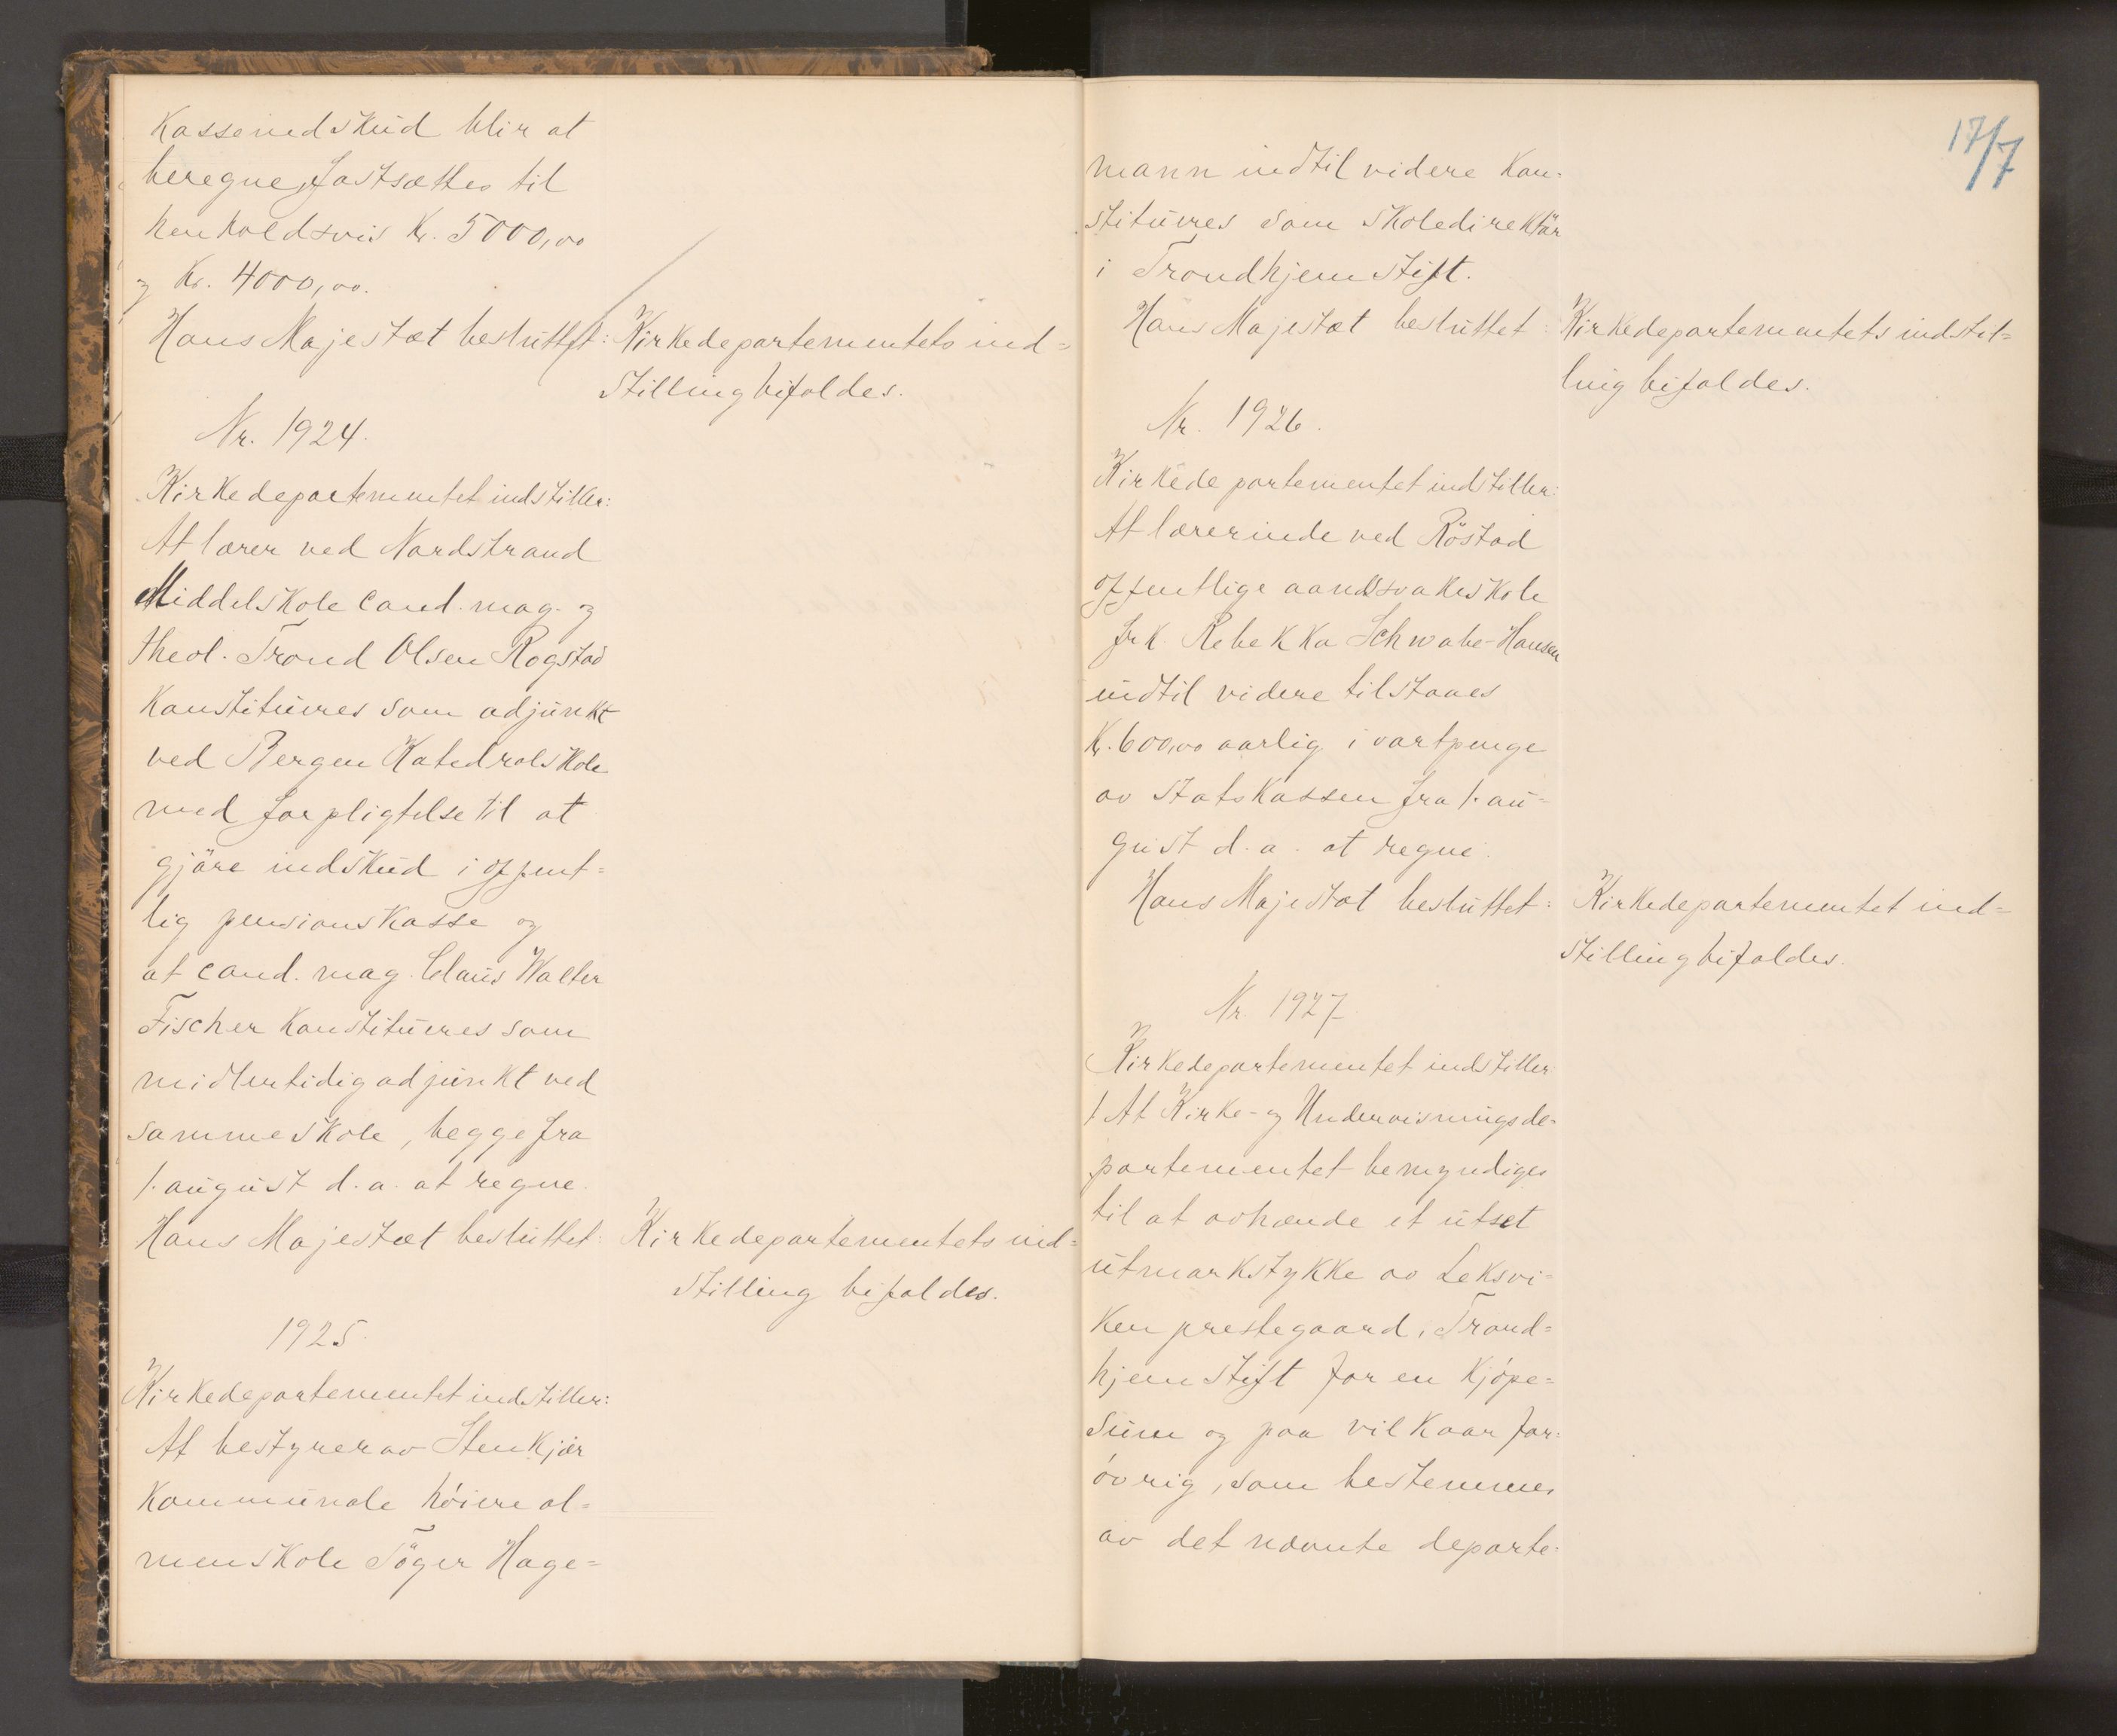 Kasseindskud blir at
beregne, fastsættes til
henholdsvis Kr. 5000,00
og Kr. 4000,00.
Hans Majestæt besluttet: Kirkedepartementets ind=
stilling bifaldes.
Nr. 1924.
Kirkedepartementet indstiller:
At lærer ved Nordstrand
Middelskole cand. mag. og
theol. Trond Olsen Rogstad
konstitueres som adjunkt
ved Bergen Katedralskole
med forpligtelse til at
gjöre indskud i offent=
lig pensionskasse og
at cand. mag. Claus Walter
Fischer konstitueres som
midlertidig adjunkt ved
samme skole, begge fra
1. august d. a. at regne.
Hans Majestæt besluttet: Kirkedepartementets ind=
stilling bifaldes.
1925.
Kirkedepartementet indstiller:
At bestyrer av Stenkjær
kommunale höiere al=
menskole Töger Hage=
17/7
mann indtil videre kon=
stitueres som skoledirektör
i Trondhjem stift.
Hans Majestæt besluttet: Kirkedepartementets indstil=
ling bifaldes.
Nr. 1926.
Kirkedepartementet indstiller:
At lærerinde ved Röstad
offentlige aandssvakeskole
frk. Rebekka Schwabe-Hansen
indtil videre tilstaaes
Kr. 600,00 aarlig i vartpenge
av statskassen fra 1. au=
gust d. a. at regne.
Hans Majestæt besluttet: Kirkedepartementet ind=
stilling bifaldes.
Nr. 1927
Kirkedepartementet indstiller
1 At Kirke- og Undervisningsde=
partementet bemyndiges
til at avhænde et utset
utmarkstykke av Leksvi=
ken prestegaard, Trond=
hjem stift for en kjöpe=
sum og paa vilkaar for=
övrig, som bestemmes
av det nævnte departe=